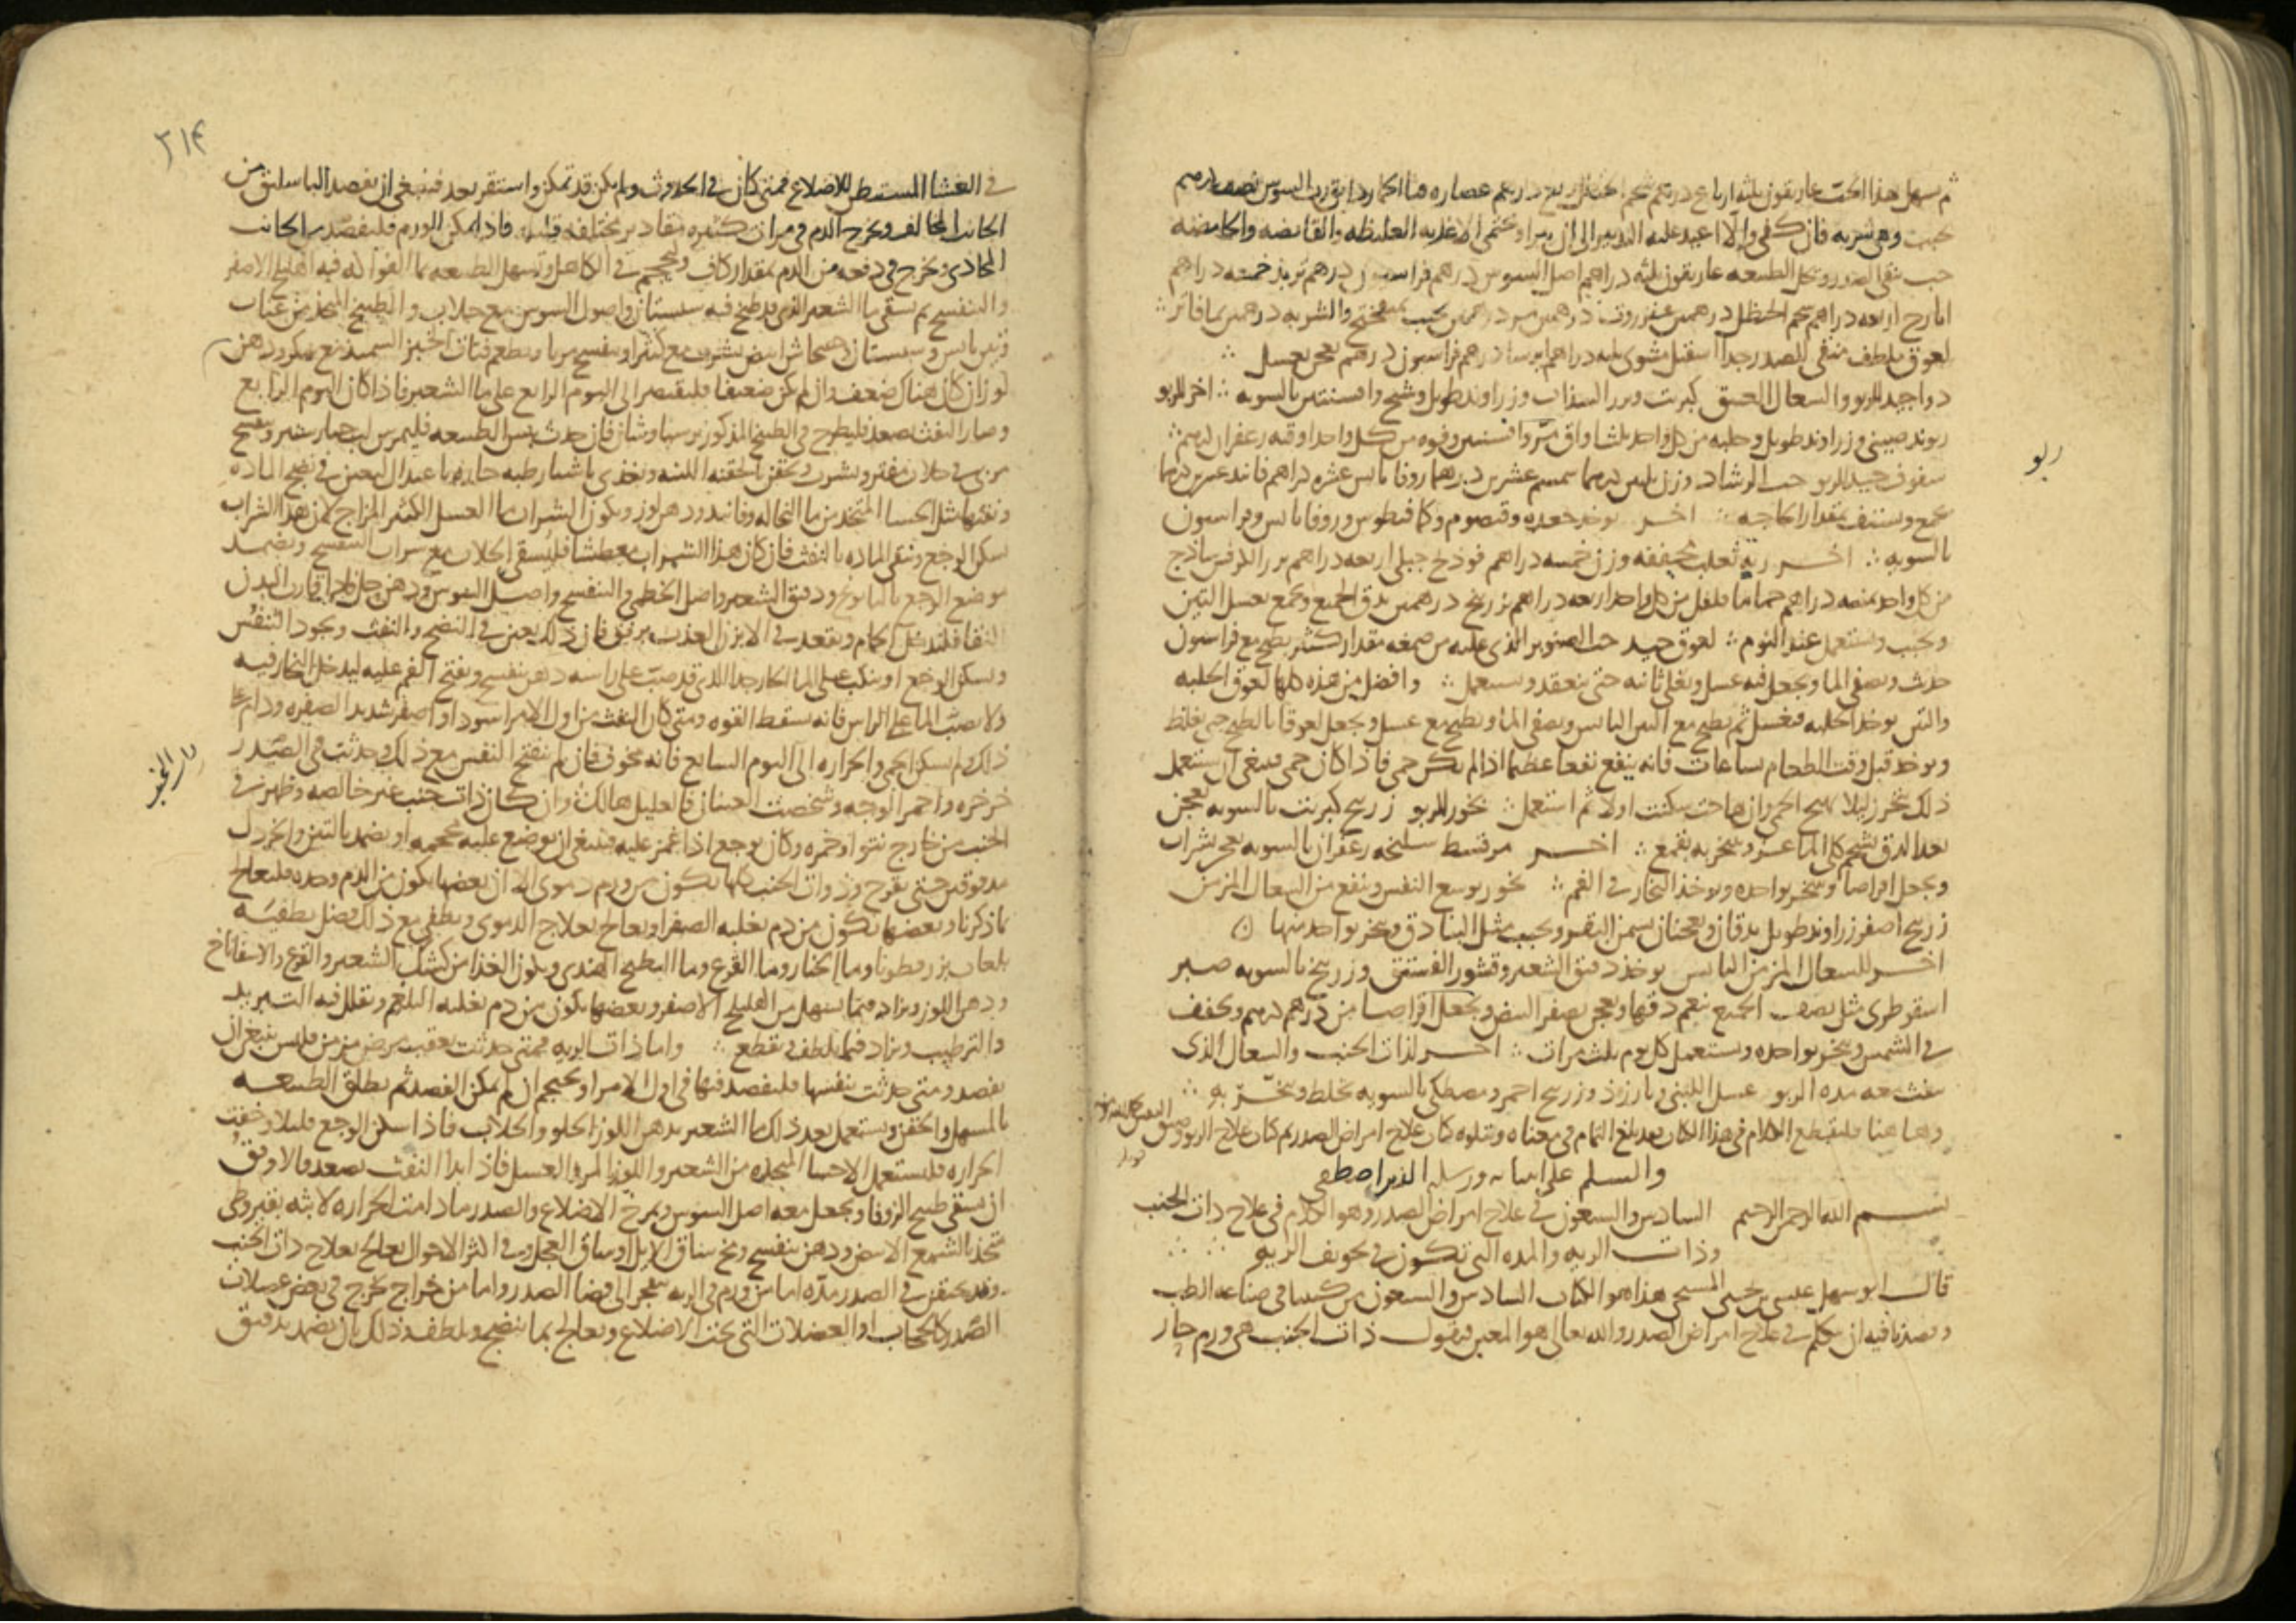 ثم يسهل بهذا الحب غاريقون ثلثة ارباع درهم شحم الحنظل ربع درهم عصاره قثا الحمار دانق رب السوس نصف درهم
يحبب وهي شربه فان كفى والا اعيد عليه التدبير الى ان يبرا ويحتمي الاغذيه الغليظه والقابضه والحامضه
حب ينقي الصدر ويحل الطبيعه غاريقون ثلثه دراهم اصل السوس درهم فراسيون درهم تربد خمسه دراهم
ايارج اربعه دراهم شحم الحنظل درهمين عنزروت درهمين مر درهمين يحبب بميفختج والشربه درهمين بما فاتر
لعوق ملطف منقي للصدر جدا اسقيل مشوي ثلثه دراهم ايرسا درهم فراسيون درهم يعجن بعسل
دوا جيد للربو والسعال العتيق كبريت وبزر السذاب وزراوند طويل وشيح وافسنتين بالسويه اخر للربو
ريوند صيني وزراوند طويل وحلبه من كل واحد ثلث اواق مر وافسنتين وفوه من كل واحد اوقيه زعفران درهم
ربو
سفوف جيد للربو حب الرشاد وزن ثلثين درهما سمسم عشرين درهما زوفا يابس عشره دراهم فانيد عشرين درهما
يجمع ويستف بمقدار الحاجه اخر يوخذ جعده وقيصوم وكمافيطوس وزوفا يابس وفراسيون
بالسويه اخر ريه ثعلب مجففه وزن خمسه دراهم فوذنج جبلي اربعه دراهم بزر الكرفس ساذج
من كل واحد ثمنيه دراهم حماما فلفل من كل واحد اربعه دراهم زرنيخ درهمين يدق الجميع ويجمع بعسل التين
ويحبب ويستعمل عند النوم لعوق جيد حب الصنوبر الذي عليه من صمغه مقدار كثير يطبخ مع فراسيون
حديث ويصفى الما ويجعل فيه عسل ويغلى ثانيه حتى ينعقد ويستعمل وافضل من هذه كلها لعوق الحلبه
والتين يوخذ الحلبه فيغسل ثم يطبخ مع التين اليابس ويصفى الما ويطبخ مع عسل ويجعل لعوقا بالطبخ حتى يغلظ
ويوخذ قبل وقت الطعام بساعات فانه ينفع نفعا عظيما اذا لم يكن حمى فاذا كان حمى فينبغي ان يستعمل
ذلك بتحرز ليلا يهيج الحمى وان هاجت سكنت اولا ثم استعمل بخور للربو زرنيخ كبريت بالسويه يعجن
بعد الدق بشحم كلى الماعز ويتبخر به بقمع اخر مر قسط سليخه زعفران بالسويه يعجن بشراب
ويجعل اقراصا ويتبخر بواحده ويوخذ البخار في الفم بخور يوسع النفس وينفع من السعال المزمن
زرنيخ اصفر زراوند طويل يدقان ويعجنان بسمن البقر ويحبب مثل البنادق ويتبخر بواحد منها
اخر للسعال المزمن اليابس يوخذ دقيق الشعير وقشور الفستق وزرنيخ بالسويه صبر
اسقوطري مثل نصف الجميع ينعم دقها ويعجن بصفر البيض ويجعل اقراصا من درهم درهم ويجفف
في الشمس ويتبخر بواحده ويستعمل كل يوم ثلث مرات اخر لذات الجنب والسعال الذي
ينفث معه مده الربو عسل اللبنى وبارزد وزرنيخ احمر ومصطكي بالسويه يخلط ويتبخر به
وهاهنا فليقطع الكلام في هذا المكان بعد بلغ التمام في معناه ويتلوه كان علاج امراض الصدر ثم كان علاج الربو وضيق
والسلم على انبيايه ورسله الذين اصطفى
بسم الله الرحمن الرحيم السادس والسبعون في علاج امراض الصدر وهو الكلام في علاج ذات الجنب
وذات الريه والمده التي تكون في تجويف الريه
قال ابو سهل عيسى بن يحيى المسيحي هذا هو الكتاب السادس والسبعون من كتبنا في صناعه الطب
وقصدنا فيه ان نتكلم في علاج امراض الصدر والله تعالى هو المعين فنقول ذات الجنب هي ورم حار
٢١٤
في الغشا المستبطن للاضلاع فمتى كان في الحدوث ولم يكن قد تمكن واستقر بعد فينبغي ان يفصد الباسليق من
الجانب المخالف ويخرج الدم في مرات كثيره بمقادير مختلفه قليله فاذا تمكن الورم فليفصد من الجانب
المحاذي ويخرج في دفعه من الدم بمقدار كاف ويحجم في الكاهل وتسهل الطبيعه بما الفواكه فيه اهليلج الاصفر
والبنفسج ثم يسقى ما الشعير الذي قد طبخ فيه سبستان واصول السوس مع جلاب والطبيخ المتخذ من عناب
وتين يابس وسبستان وخشخاش ابيض بشراب مع كثيرا وبنفسج مربا ويطعم فتات الخبز السميد مع سكر ودهن
لوز ان كان هناك ضعف وان لم يكن ضعيفا فليقتصر الى اليوم الرابع على ما الشعير فاذا كان اليوم الرابع
وصار النفث يصعد فليطرح في الطبيخ المذكور برسياوشان فان حدث يبس الطبيعه فليمرس لب خيارشنبر وبنفسج
مربى في جلاب مفتر ويشرب ويحقن بالحقنه اللينه ويغذى باشيا رطبه حاره باعتدال ليعين في نضج الماده
ونفثها مثل الحسا المتخذ من ما النخاله وفانيد ودهن لوز ويكون الشراب ما العسل الكثير المزاج لان هذا الشراب
يسكن الوجع وينقي الماده بالنفث فان كان هذا الشراب يعطشا فليسقى الجلاب مع شراب البنفسج ويضمد
موضع الوجع بالبابونج ودقيق الشعير واصل الخطمي والبنفسج واصل السوس ودهن حل واذا قارب البدن
النقا فليدخل الحمام ويقعد في الابزن العذب برفق فان ذلك يعين في النضج والنفث ويجود التنفس
ويسكن الوجع او ينكب على الما الحار جدا الذي قد صب على راسه دهن بنفسج ويفتح الفم عليه ليدخل البخار فيه
ولا يصب الما على الراس فانه يسقط القوه ومتى كان النفث من اول الامر اسود او اصفر شديد الصفره ودام
ذلك ولم يسكن الحمى والحراره الى اليوم السابع فانه مخوف فان لم ينفتح النفس مع ذلك وحدثت في الصدر
خرخره واحمر الوجه وشخصت العينان فالعليل هالك وان كان ذات جنب غير خالصه وظهر في
الجنب من خارج نتو او حمره وكان يوجع اذا غمز عليه فينبغي ان يوضع عليه محجمه او يضمد بالتين والخردل
مدقوقين حتى يقرح وذوات الجنب كلها تكون من ورم دموي الا ان بعضها يكون من الدم وحده فليعالج
بما ذكرنا وبعضها تكون من دم يغلبه الصفرا ويعالج بعلاج الدموي ويطفى مع ذلك فضل تطفيه
بلعاب بزر قطونا وما الخيار وما القرع وما البطيخ الهندي ويكون الغذا من كشك الشعير والقرع والاسفاناخ
ودهن اللوز ويزاد فيما يسهل من الهليلج الاصفر وبعضها يكون من دم يغلبه البلغم ويقلل فيه التبريد
والترطيب ويزاد فيما يلطف ويقطع واما ذات الريه فمتى حدثت بعقب مرض مزمن فليس ينبغي ان
يفصد ومتى حدثت بنفسها فليفصد فيها في اول الامر او يحتجم ان لم يمكن الفصد ثم يطلق الطبيعه
بالمسهل والحقن ويستعمل بعد ذلك ما الشعير بدهن اللوز الحلو والجلاب فاذا سكن الوجع قليلا وخفت
الحراره فليستعمل الاحسا المتخذه من الشعير واللوز المر في العسل فاذا ابدا النفث يصعد فالاوفق
ان يسقى طبيخ الزوفا ويجعل معه اصل السوس ويمرخ الاضلاع والصدر ما دامت الحراره لابثه بقيروطي
متخذ بالشمع الابيض ودهن بنفسج ومخ ساق الايل او ساق العجل وفي اكثر الاحوال يعالج بعلاج ذات الجنب
وقد يحتقن في الصدر مده اما من ورم في الريه ينفجر الى فضا الصدر واما من خراج يخرج في بعض عضلات
الصدر كالحجاب او العضلات التي تحت الاضلاع ويعالج بما ينضج ويلطف وذلك بان يضمد بدقيق